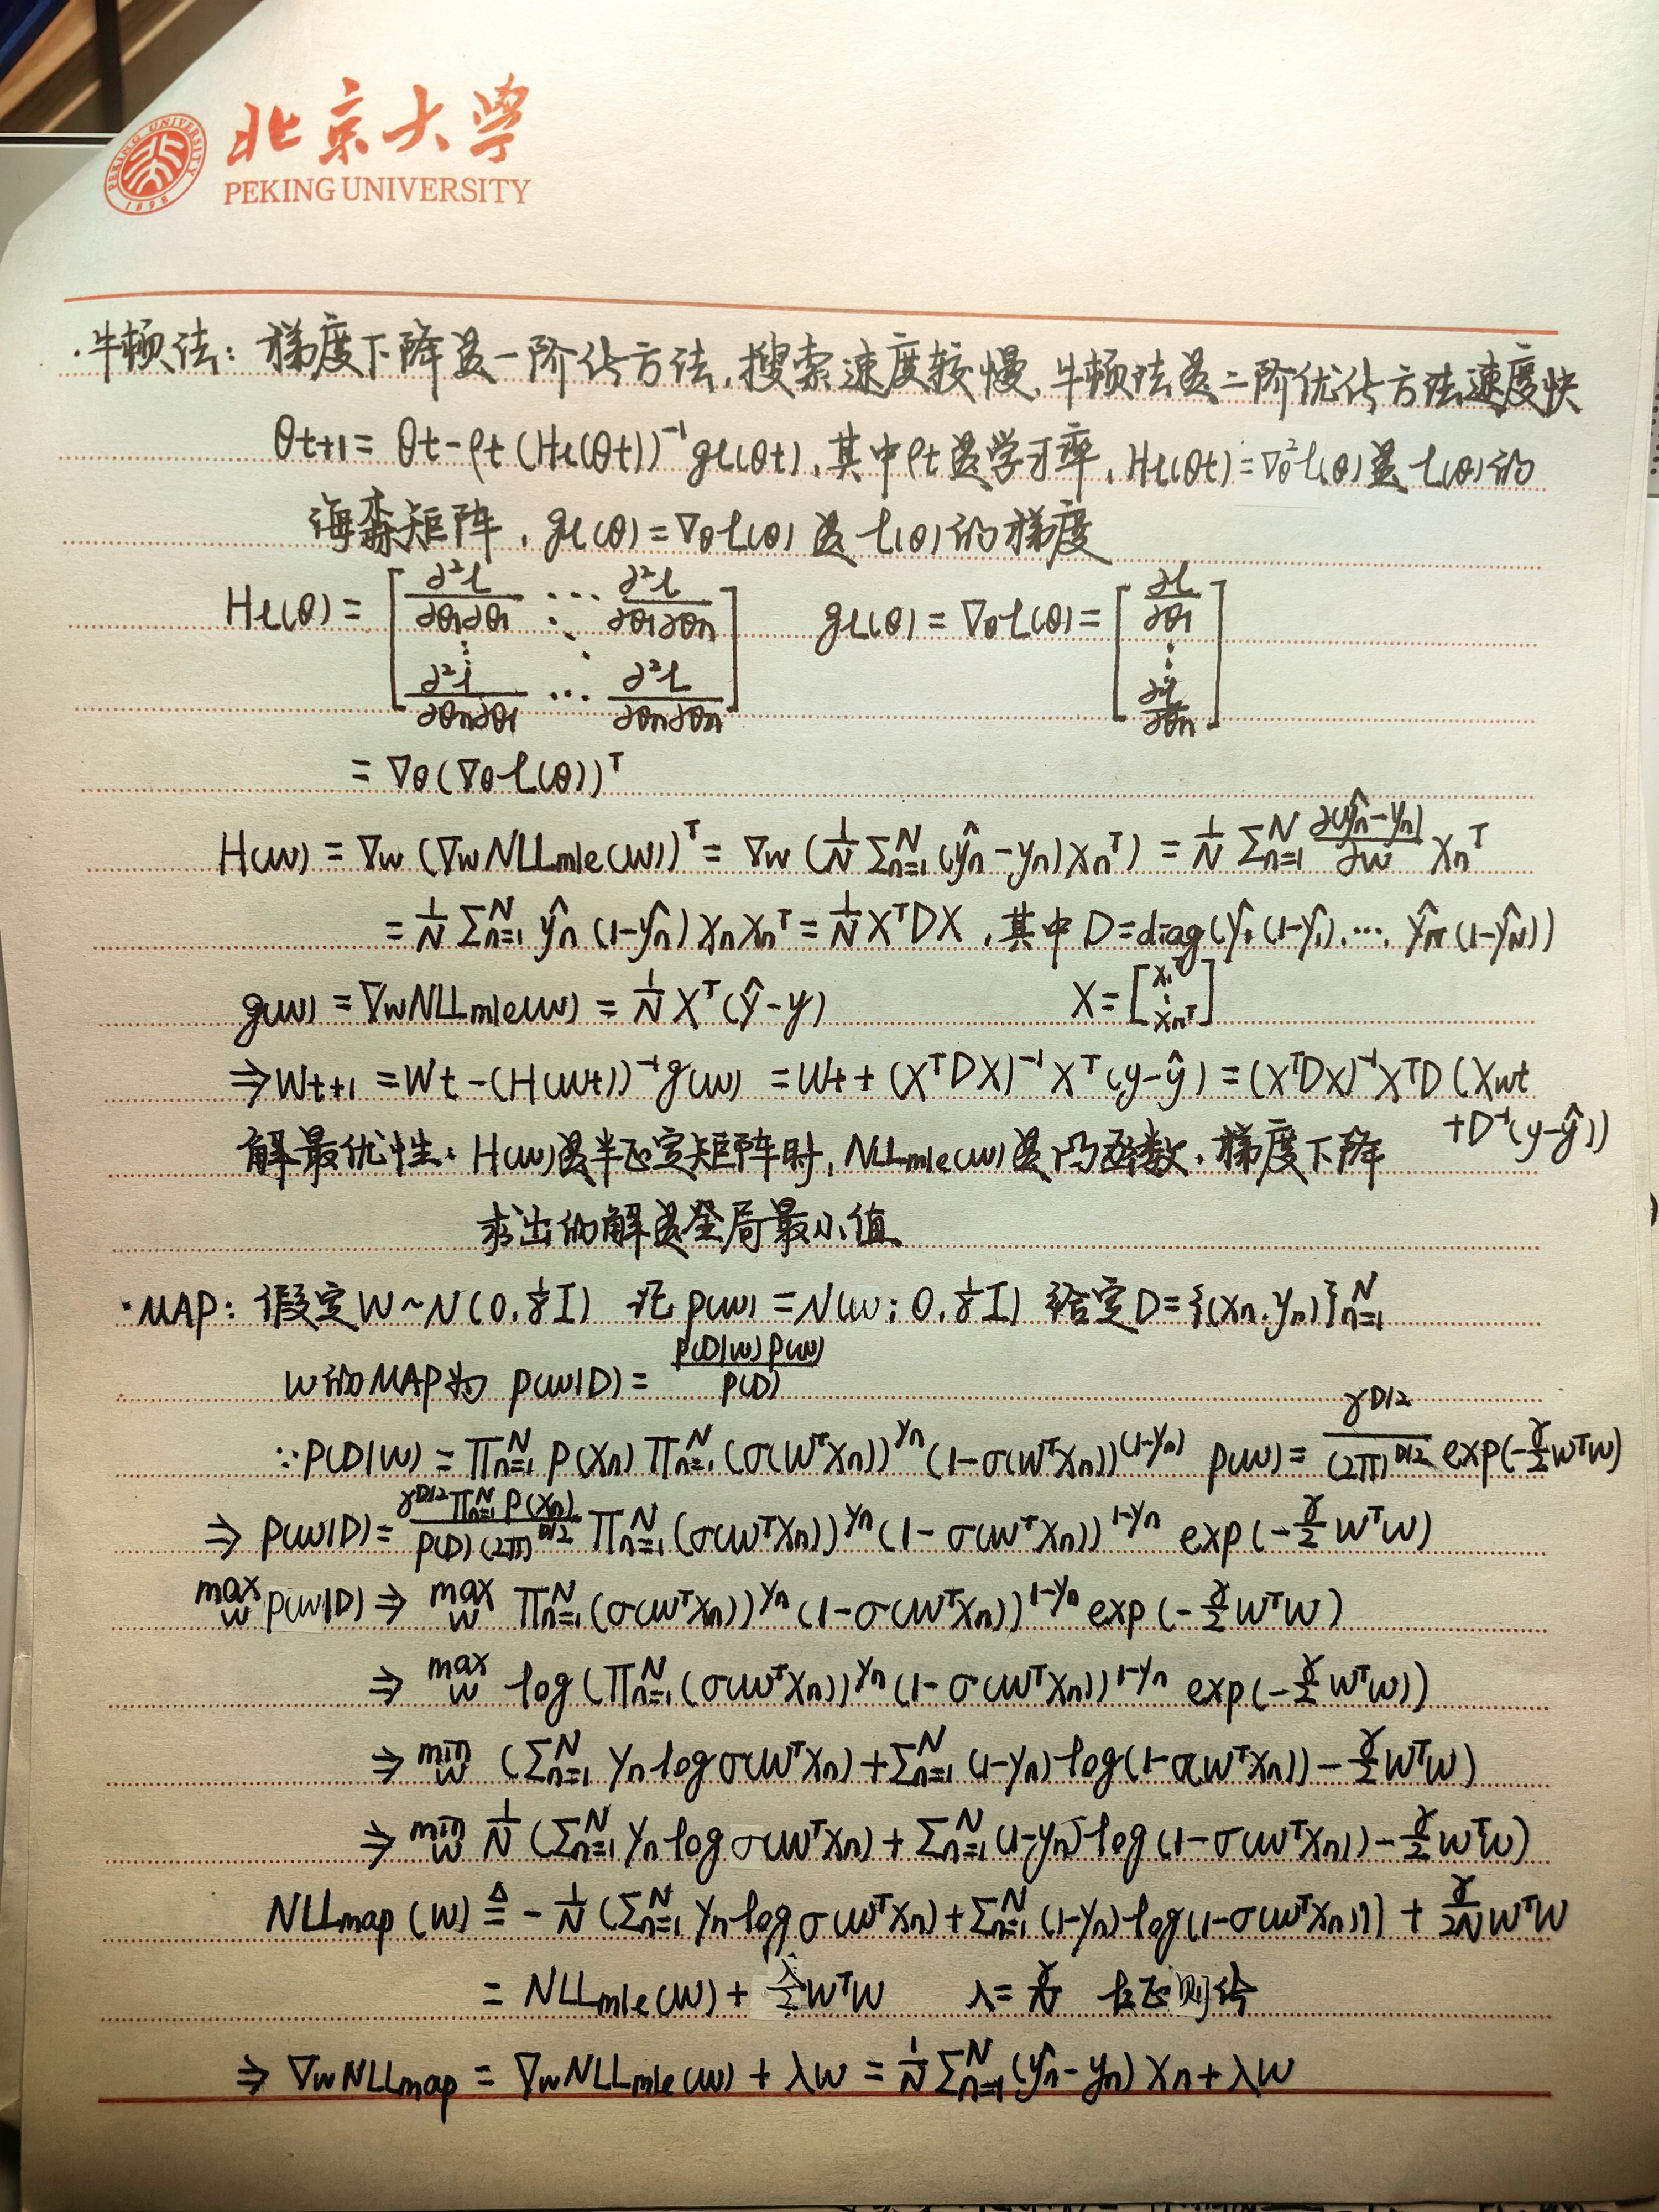 北京大学
PEKING UNIVERSITY
PEKING UNIVERSITY 1898
·牛顿法: 梯度下降是一阶化方法,搜索速度较慢,牛顿法是二阶优化方法速度快
θt+1 = θt - ρt (Hl(θt))⁻¹ gl(θt), 其中ρt是学习率, Hl(θt) = ∇θ² l(θ) 是 l(θ) 的
海森矩阵, gl(θ) = ∇θ l(θ) 是 l(θ) 的梯度
Hl(θ) = [∂²l/∂θ1∂θ1 ⋯ ∂²l/∂θ1∂θn ⋮ ⋱ ∂²l/∂θn∂θ1 ⋯ ∂²l/∂θn∂θn] gl(θ) = ∇θ l(θ) = [∂l/∂θ1 ⋮ ∂l/∂θn]
= ∇θ(∇θ l(θ))ᵀ
H(w) = ∇w (∇w NLLmle(w))ᵀ = ∇w (1/N Σn=1^N (ŷn - yn) xnᵀ) = 1/N Σn=1^N ∂(ŷn - yn)/∂w xnᵀ
= 1/N Σn=1^N ŷn (1-ŷn) xn xnᵀ = 1/N XᵀDX, 其中 D = diag(ŷ1(1-ŷ1), ⋯, ŷN(1-ŷN))
g(w) = ∇w NLLmle(w) = 1/N Xᵀ(ŷ - y) X = [x1ᵀ ⋮ xnᵀ]
⇒ Wt+1 = Wt - (H(wt))⁻¹ g(w) = Wt + (XᵀDX)⁻¹ Xᵀ(y-ŷ) = (XᵀDX)⁻¹XᵀD (Xwt
+D⁻¹(y-ŷ))
解最优性: H(w)是半正定矩阵时, NLLmle(w)是凸函数, 梯度下降
求出的解是全局最小值
·MAP: 假定 W~N(0, 1/γ I) 记 p(w) = N(w; 0, 1/γ I) 给定 D={(xn, yn)}n=1^N
w的MAP为 p(w|D) = p(D|w) p(w)/p(D)
∵ P(D|w) = Πn=1^N p(xn) Πn=1^N (σ(wᵀxn))^yn (1-σ(wᵀxn))^(1-yn) p(w) = γ^D/2/(2π)^D/2 exp(-γ/2 wᵀw)
⇒ p(w|D) = γ^D/2 Πn=1^N p(xn)/p(D)(2π)^D/2 Πn=1^N (σ(wᵀxn))^yn (1-σ(wᵀxn))^1-yn exp(-γ/2 wᵀw)
max w p(w|D) ⇒ max w Πn=1^N (σ(wᵀxn))^yn (1-σ(wᵀxn))^1-yn exp(-γ/2 wᵀw)
⇒ max w log(Πn=1^N (σ(wᵀxn))^yn (1-σ(wᵀxn))^1-yn exp(-γ/2 wᵀw))
⇒ min w (Σn=1^N yn log σ(wᵀxn) + Σn=1^N (1-yn) log(1-σ(wᵀxn)) - γ/2 wᵀw)
⇒ min w 1/N (Σn=1^N yn log σ(wᵀxn) + Σn=1^N (1-yn) log(1-σ(wᵀxn)) - γ/2 wᵀw)
NLLmap(w) ≜ -1/N (Σn=1^N yn log σ(wᵀxn) + Σn=1^N (1-yn) log(1-σ(wᵀxn))) + γ/2N wᵀw
= NLLmle(w) + λ/2 wᵀw λ = γ/N L2正则化
⇒ ∇w NLLmap = ∇w NLLmle(w) + λw = 1/N Σn=1^N (ŷn - yn) xn + λw